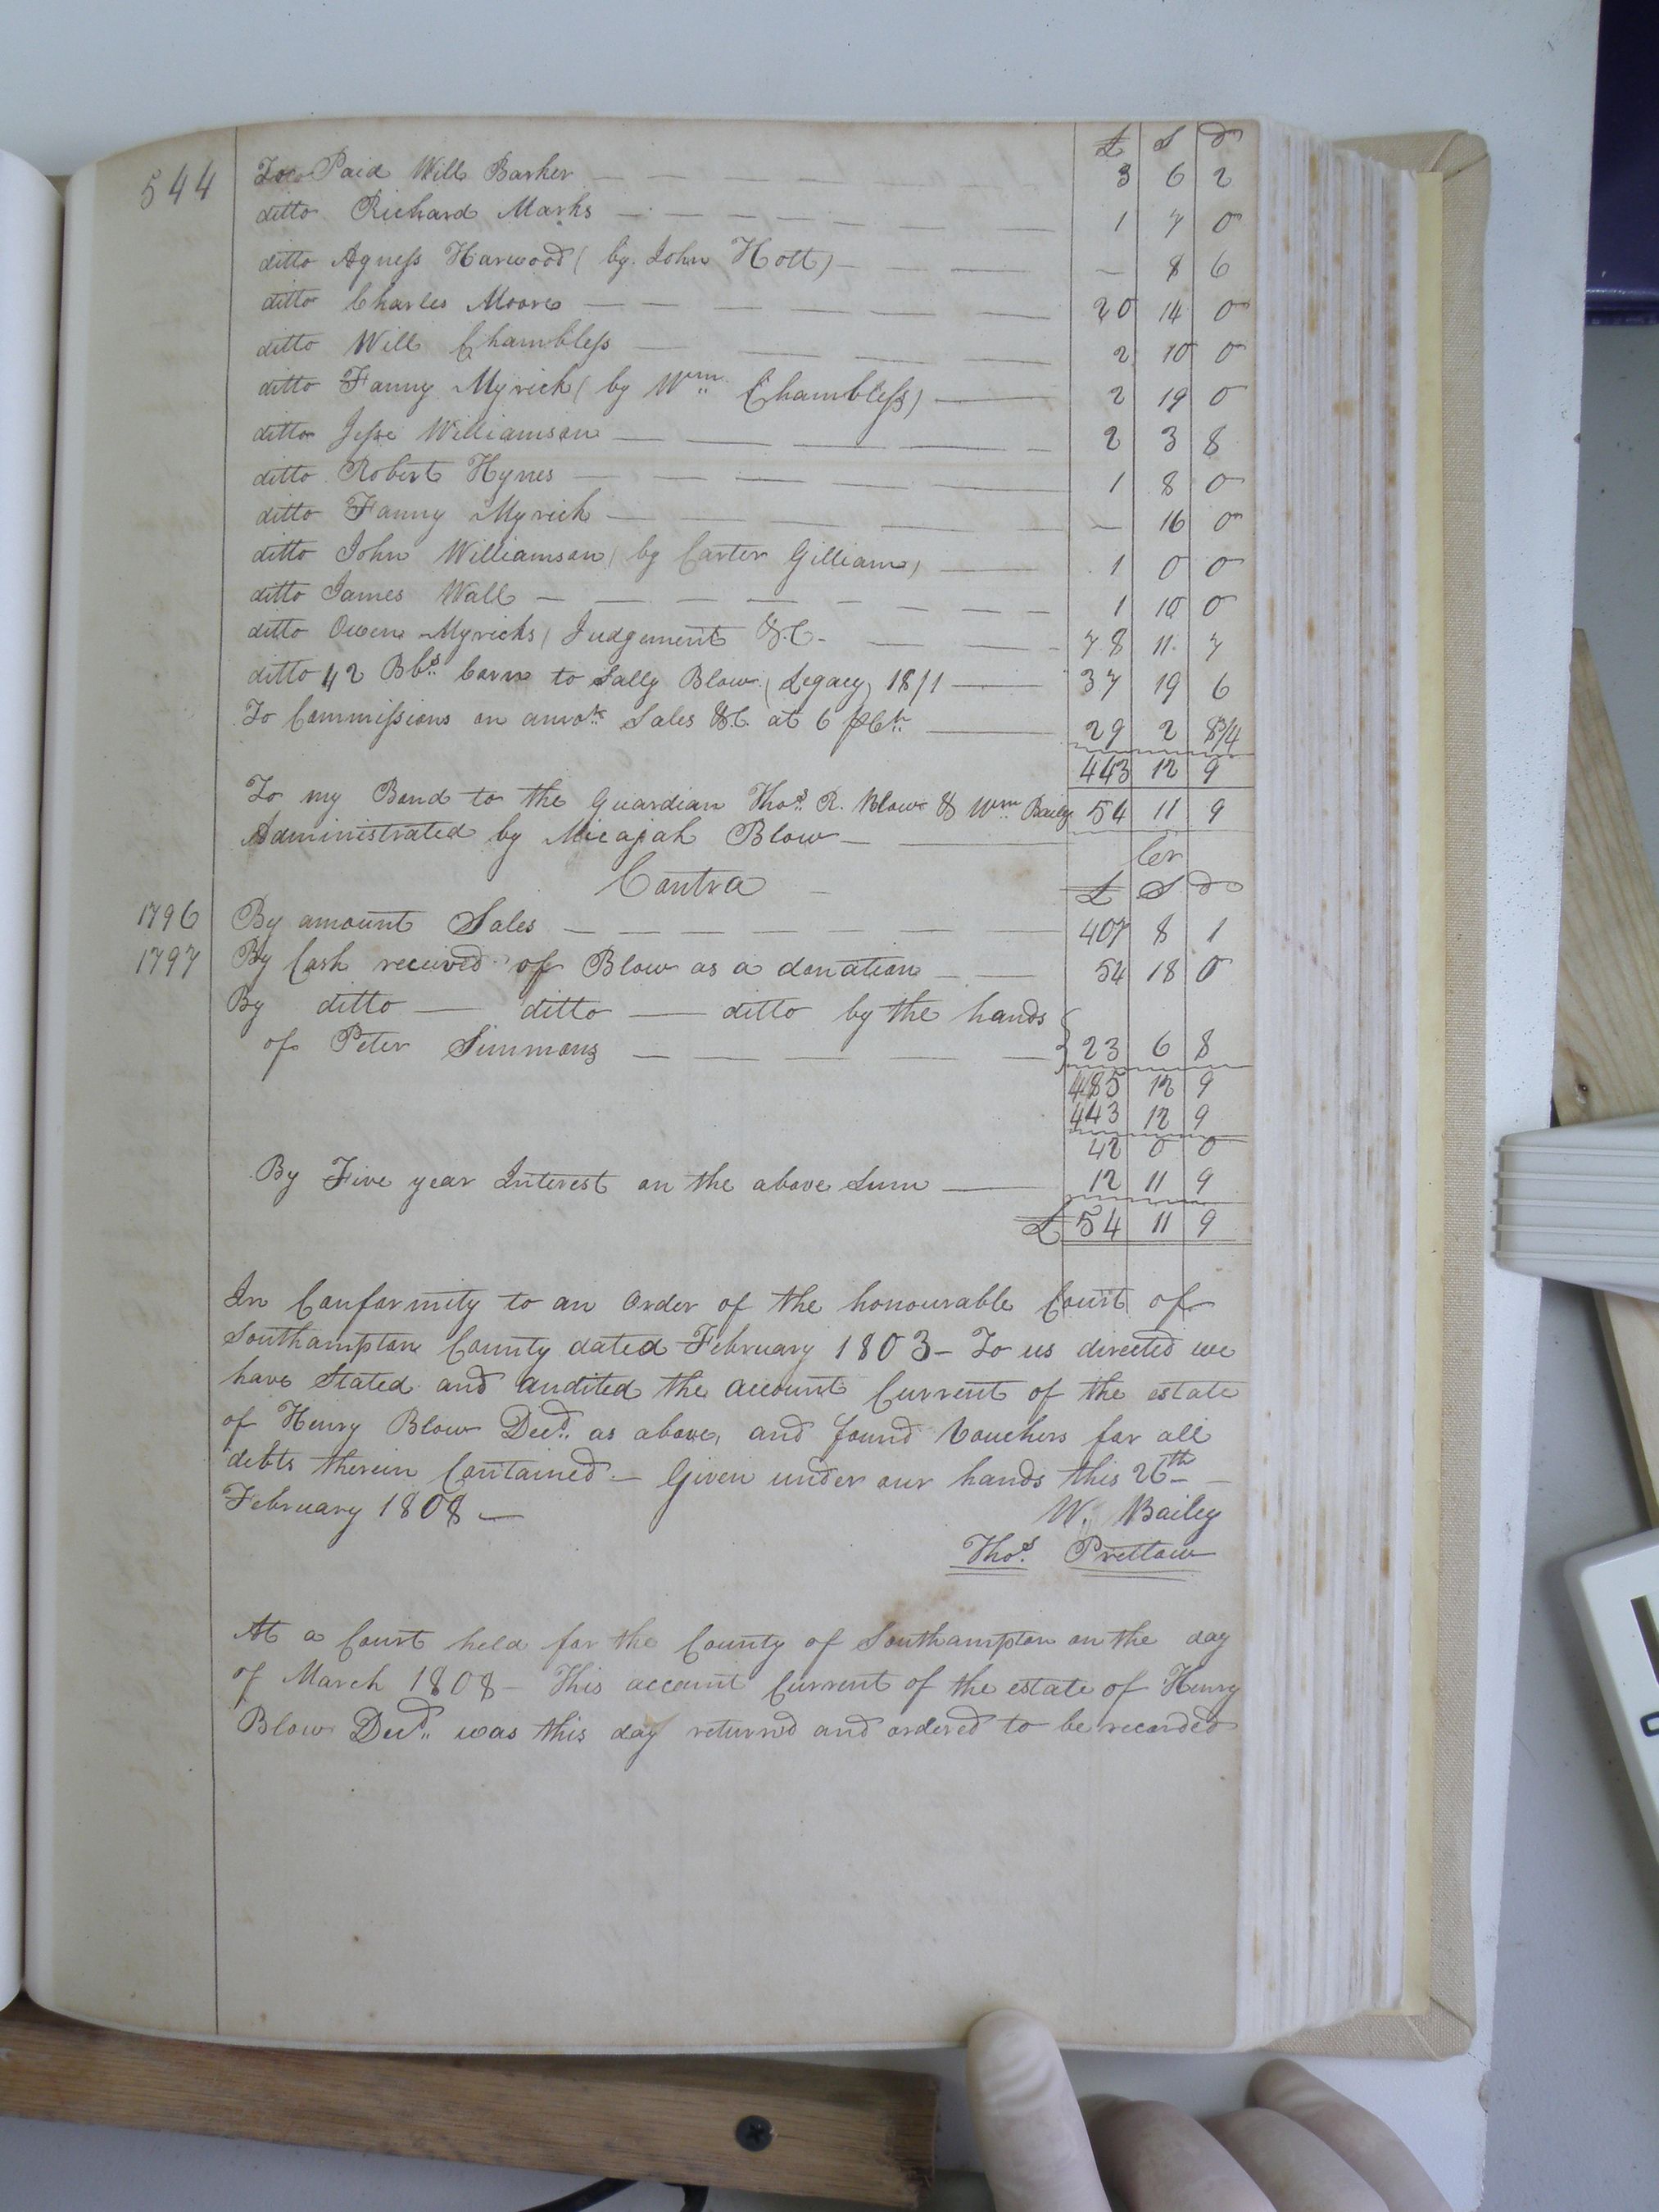 £ S D
544 To Paid Will Barker 3 6 2
ditto Richard Marks 1 7 0
ditto Agness Harwood (by John Hott) — 8 6
ditto Charles Moore 20 14 0
ditto Will Chambless 2 10 0
ditto Fanny Myrick (by Wm Chambless) 2 19 0
ditto Jesse Williamson 2 3 8
ditto Robert Hynes 1 8 0
ditto Fanny Myrick — 16 0
ditto John Williamson (by Carter Gilliam) 1 0 0
ditto James Wall 1 10 0
ditto Owen Myricks (Judgement &C. 78 11 7
ditto 42 Bbs. Corn to Sally Blow (Legacy) 18/1 37 19 6
To Commissions on amots. Sales &C. at 6 pCt. 29 2 8/4
443 12 9
To my Bond to the Guardian Thos. R. Blow & Wm. Baily 54 11 9
Administrated by Micajah Blow
Cr
Contra £ S D
1796 By amount Sales 407 8 1
1797 By Cash received of Blow as a donation 54 18 0
By ditto — ditto — ditto by the hands
of Peter Simmons } 23 6 8
485 12 9
443 12 9
42 0 0
By Five year Interest on the above Sum 12 11 9
£ 54 11 9
In Conformity to an Order of the honourable Court of
Southampton County dated February 1803 – To us directed we
have Stated and audited the account Current of the estate
of Henry Blow Decd. as above, and found Vouchers for all
debts therein Contained – Given under our hands this 26th
February 1808 –
W. Bailey
Thos. Pretlow
At a Court held for the County of Southampton on the day
of March 1808 – This account Current of the estate of Henry
Blow Decd. was this day returned and ordered to be recorded